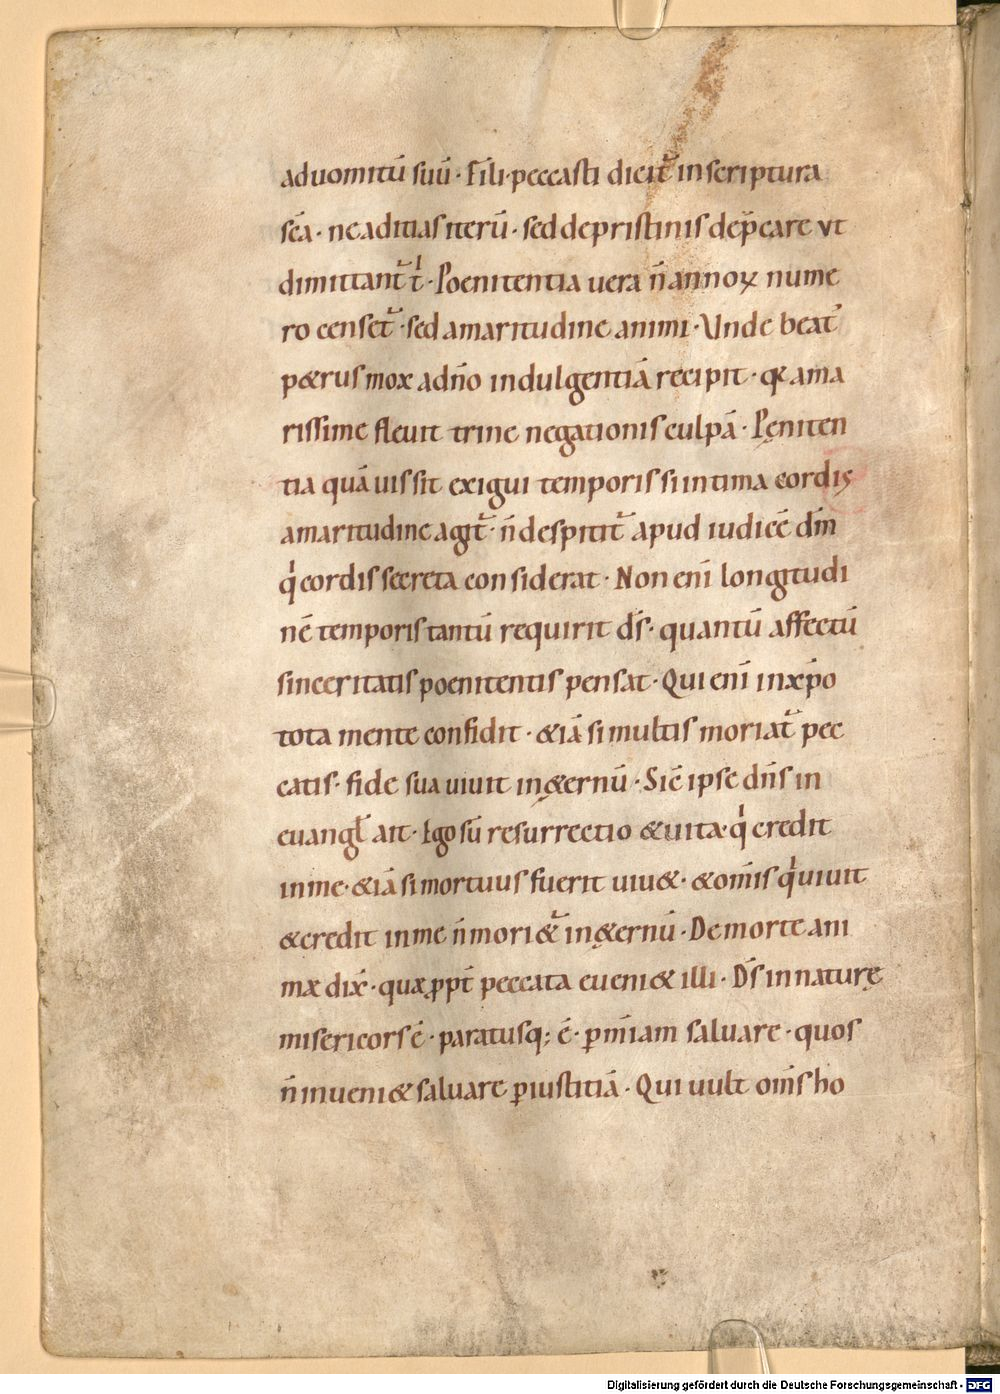 aduomitū suū · Fili peccasti dicit᷑ in scriptura
sc̄a · ne aditias iterū · sed de pristinis dep̄care vt
dimittant᷑ t̍ · Poenitentia uera n̄ annoꝝ nume
ro censet᷑ · sed amaritudine animi · Unde beat᷒
p&rus mox ad dn̄o indulgentiā recipit · qꝛ ama
rissime fleuit trine negationis culpā · Pęniten
tia quāuis sit exigui temporis si intima cordis
amaritudine agit᷑ · n̄ despitit᷑ apud iudicē dm̄
q̍ cordis secreta considerat · Non eni̅ longitudi
nē temporis tantū requirit ds̄ · quantū affectū
sinceritatis poenitentis pensat · Qui eni̅ in xp̄o
tota mente confidit · &iā si multis moriat᷑ pec
catis · fide sua uiuit in &ernū · Sic̄ ipse dn̄s in
euangl̄ ait · Ego sū resurrectio & uita · q̍ credit
in me · &iā si mortuus fuerit uiu& · & om̄is q̍ uiuit
& credit in me n̄ mori&᷑ in &ernū · De morte ani
mæ dix̄ · quæ ꝓpt̄ peccata eueni& illi · Ds̄ in naturę
misericors ē · paratusq; ē · ꝑ m̄iam saluare · quos
n̄ inueni& saluare ꝑ iustitiā · Qui uult om̄s ho
Digitalisierung gefördert durch die Deutsche Forschungsgemeinschaft - DFG